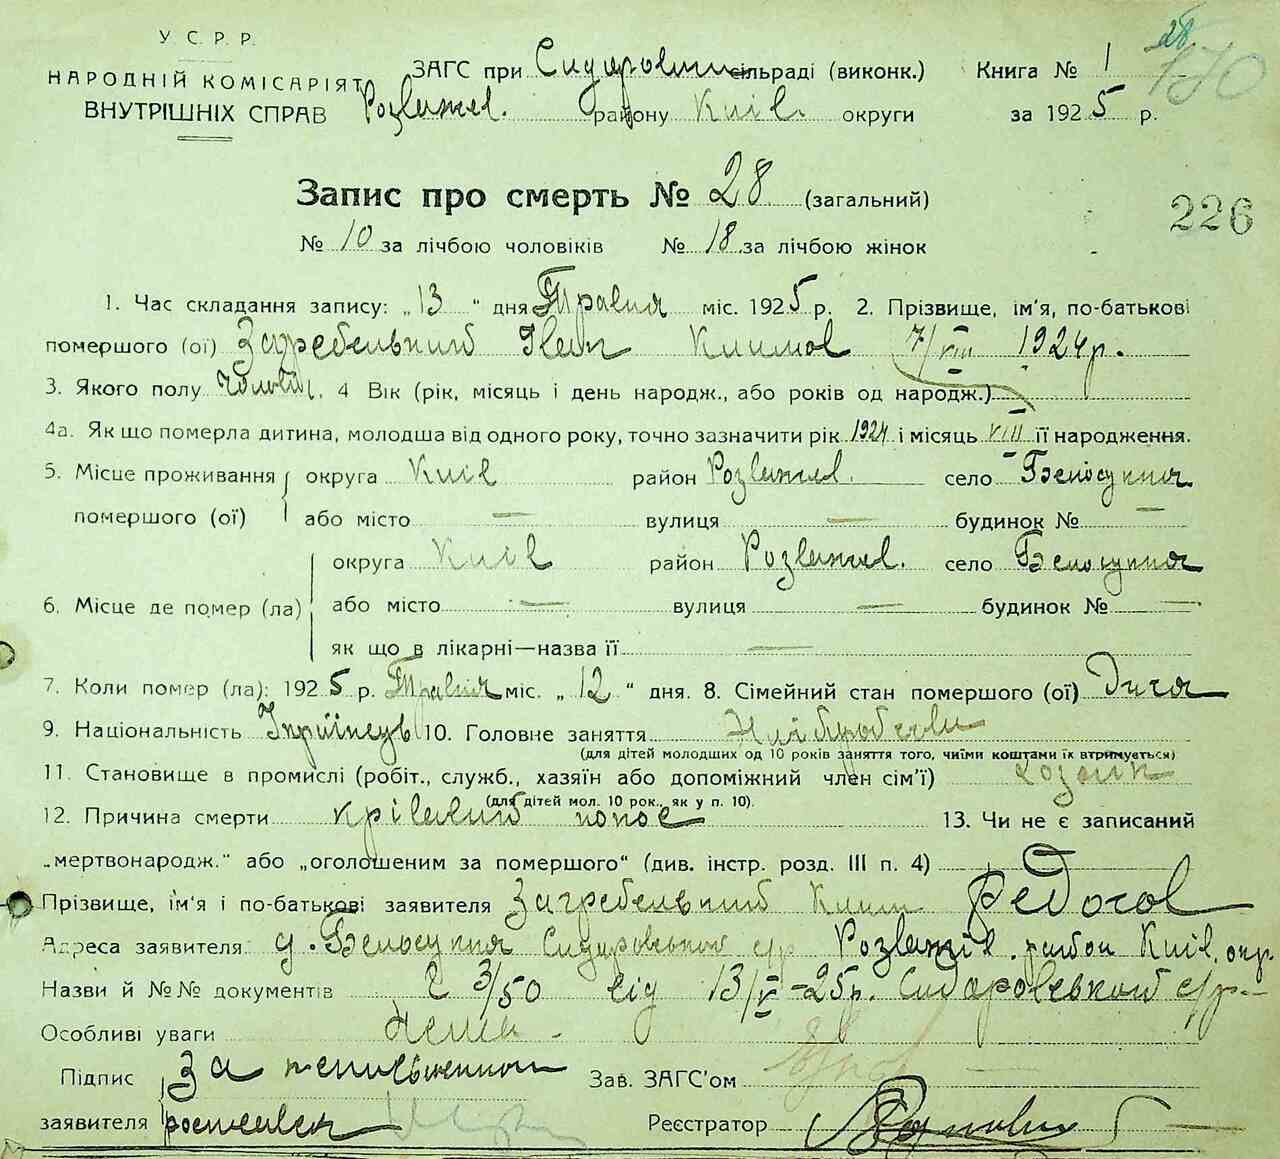 28
170
У. С. Р. Р.
НАРОДНІЙ КОМІСАРІЯТ
ВНУТРІШНІХ СПРАВ
ЗАГС при Сидоровській сільраді (виконк.) Книга № 1
Розважев. району Київ. округи за 1925 р.
Запис про смерть № 28 (загальний)
226
№ 10 за лічбою чоловіків № 18 за лічбою жінок
1. Час складання запису: „13“ дня Травня міс. 1925 р. 2. Прізвище, ім'я, по-батькові
помершого (ої) Загребельний Іван Климов 7/VIII 1924 р.
3. Якого полу Чоловіч. 4 Вік (рік, місяць і день народж., або років од народж.)
4а. Як що померла дитина, молодша від одного року, точно зазначити рік 1924 і місяць VIII її народження.
5. Місце проживання помершого (ої) округа Київ район Розважев. село Белосукня
або місто — вулиця — будинок № —
6. Місце де помер (ла) округа Київ район Розважев. село Белосукня
або місто — вулиця — будинок № —
як що в лікарні—назва її —
7. Коли помер (ла): 1925 р. Травня міс. „12“ дня. 8. Сімейний стан помершого (ої) Дитя
9. Національність Українець 10. Головне заняття Хліборобство
(для дітей молодших од 10 років заняття того, чиїми коштами їх втримується)
11. Становище в промислі (робіт., служб., хазяїн або допоміжний член сім'ї) хозяин
(для дітей мол. 10 рок., як у п. 10).
12. Причина смерти крівавий понос 13. Чи не є записаний
„мертвонародж.“ або „оголошеним за помершого“ (див. інстр. розд. III п. 4) —
Прізвище, ім'я і по-батькові заявителя Загребельний Клим Федосов
Адреса заявителя: д. Белосукня Сидоровської с/р Розважів. район Київ. окр.
Назви й №№ документів 3/50 від 13/V-25 р. Сидоровської с/р.
Особливі уваги Нема
Підпис заявителя За неписьменного
Зав. ЗАГС'ом
Реєстратор